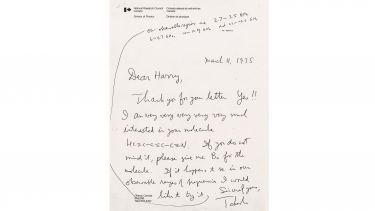 National Research Council Canada
Conseil national de recherches Canada
Division of Physics
Division de physique
Our observable regions are 2.7 – 3.5 GHz
March 11, 1975
Dear Harry,
Thank you for your letter Yes !!
I am very very very very very much
interested in your molecule
H-C≡C-C≡C-C≡N. If you do not
mind it, please give me B₀ for the
molecule. If it happens to be in our
observable ranges of frequencies I would
like to try it.
Sincerely yours,
Takeshi
Ottawa, Canada